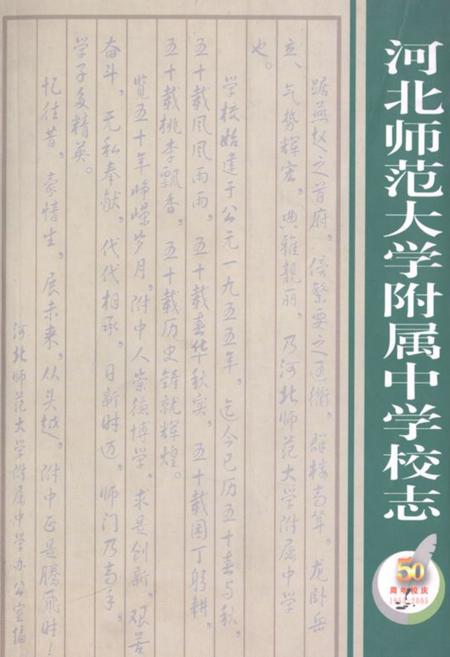 河北师范大学附属中学校志
踞燕赵之首府，倚繁要之通衢，群楼高耸，龙卧兵
立，气势辉宏，典雅靓丽，乃河北师范大学附属中学
也。
学校始建于公元一九五五年，迄今已历五十春与秋。
五十载风风雨雨，五十载春华秋实，五十载园丁躬耕，
五十载桃李飘香，五十载历史铸就辉煌。
览五十年峥嵘岁月，附中人崇德博学，求是创新，艰苦
奋斗，无私奉献，代代相承，日新时迈，师门乃高手，
学子多精英。
忆往昔，豪情生，展未来，从头越，附中正是腾飞时！
河北师范大学附属中学办公室编
50
周年校庆
1955-2005